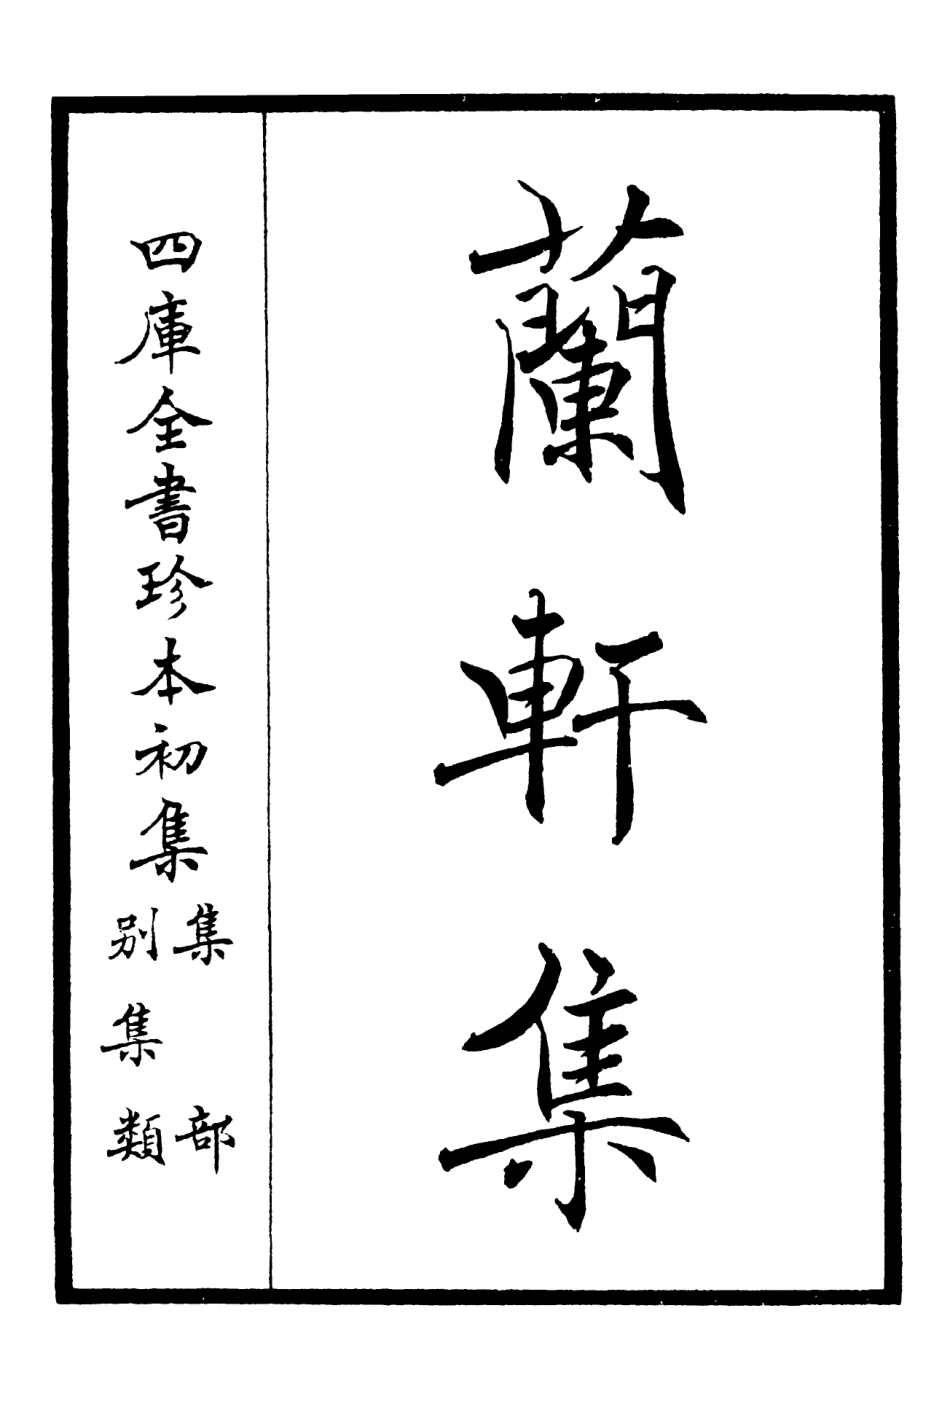 蘭軒集
四庫全書珍本初集
集部
別集類